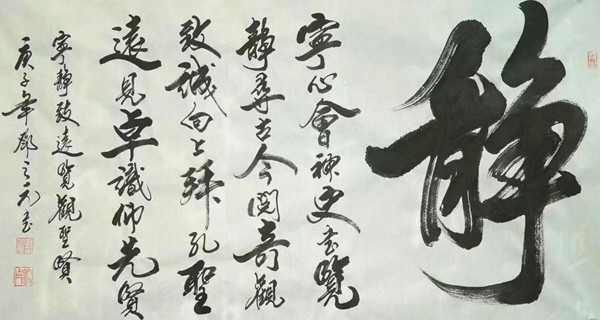 静
寧心會神史書覽
靜尋古今閱奇觀
致誠向上拜孔聖
遠見卓識仰先賢
寧靜致遠覽觀聖賢
庚子年鄭之書